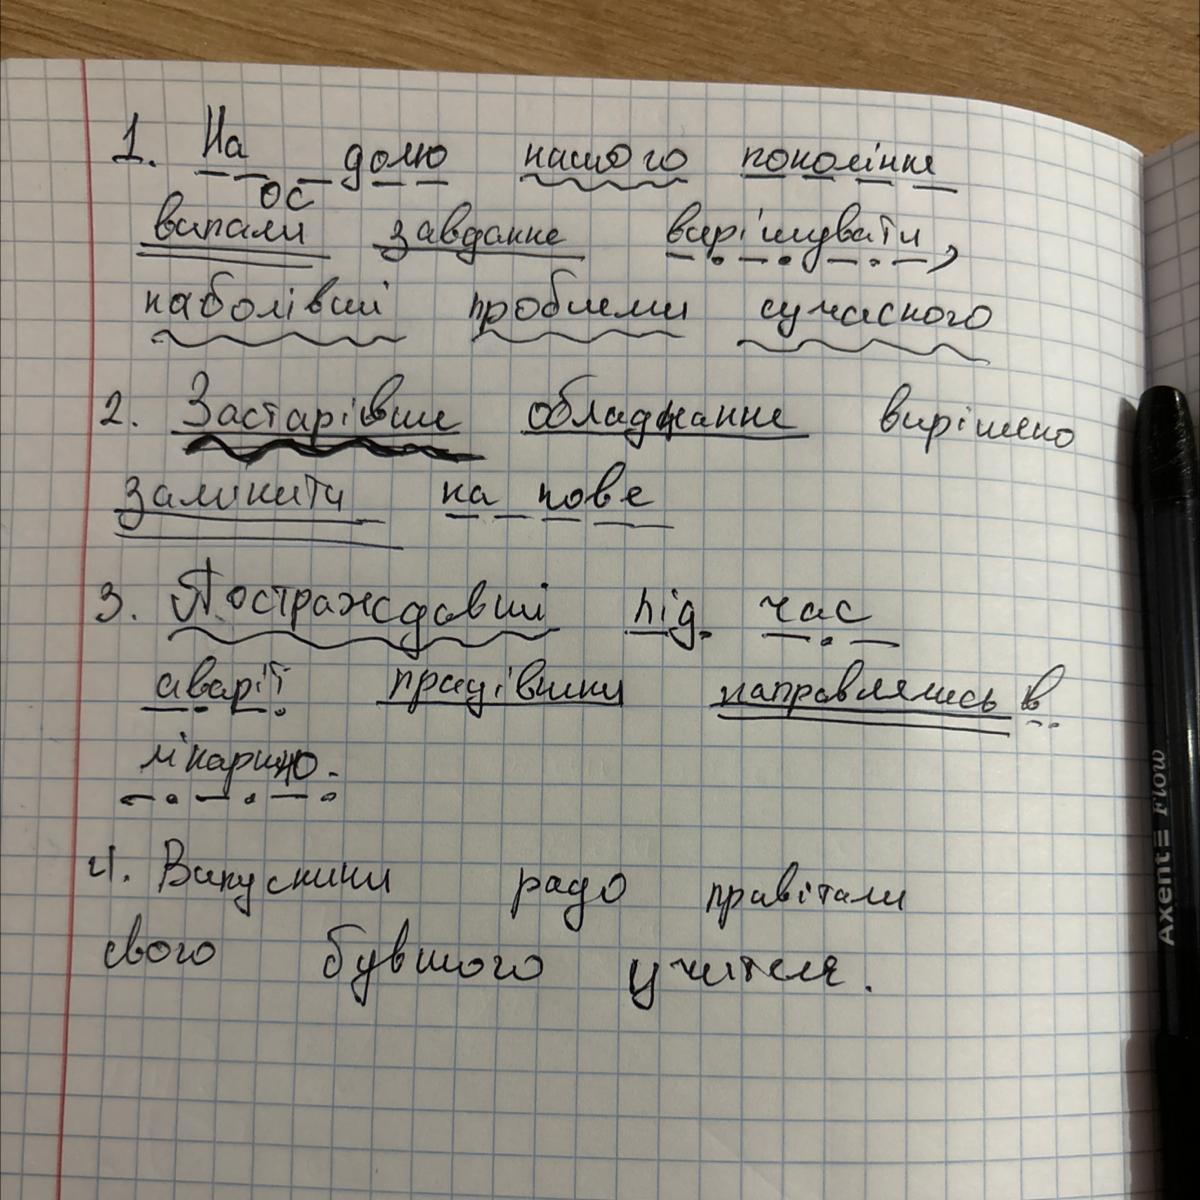 1. На долю нашого покоління
ос
випали завдання вирішувати,
наболівші проблеми сучасного
2. Застарівше обладнання вирішено
замінити на нове
3. Постраждавші під час
аварії працівники направлялись в
лікарню.
4. Випускники радо привітали
свого бувшого учителя.
Axent Flow